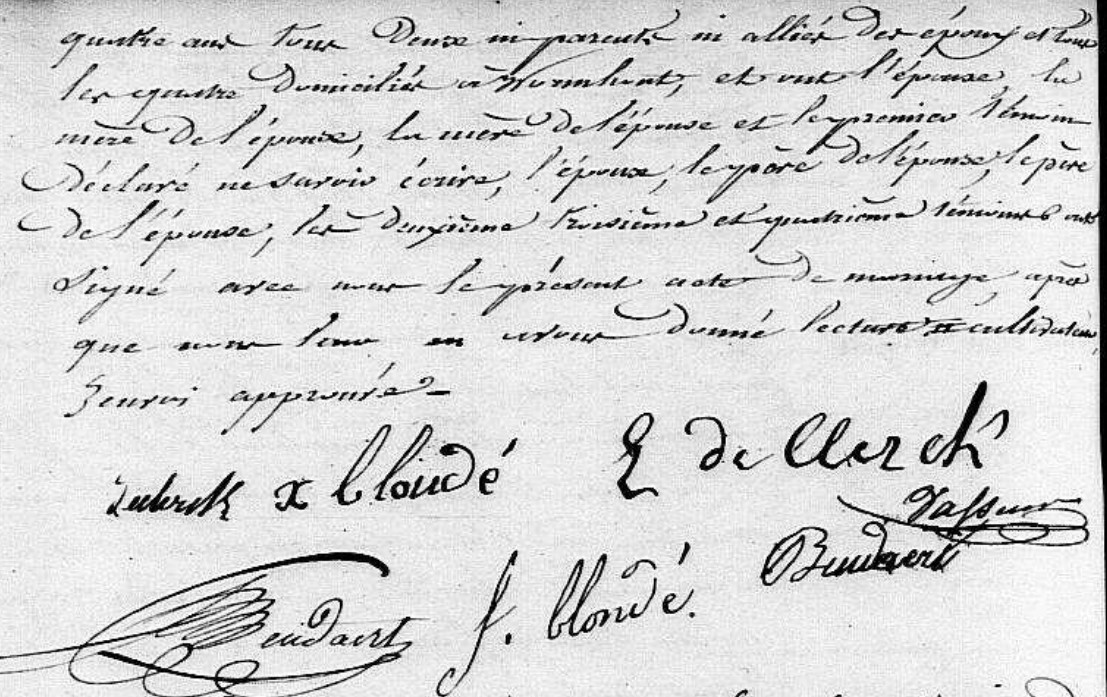 quatre ans tous Deux ni parents ni alliés Des époux et tous
les quatre Domiciliés à Wormhout, et ont l'épouse, la
mère De l'épouse, la mère de l'épouse et le premier témoin
Déclaré ne savoir écrire, l'époux, le père de l'épouse, le père
de l'épouse, les Deuxième troisième et quatrième témoins ont
Signé avec nous le présent acte De mariage, après
que nous leur en avons Donné lecture cultivateur,
renvoi approuvé
x blondé E de Clerck
Vasseur
Beudaert f. blondé. Beudaert